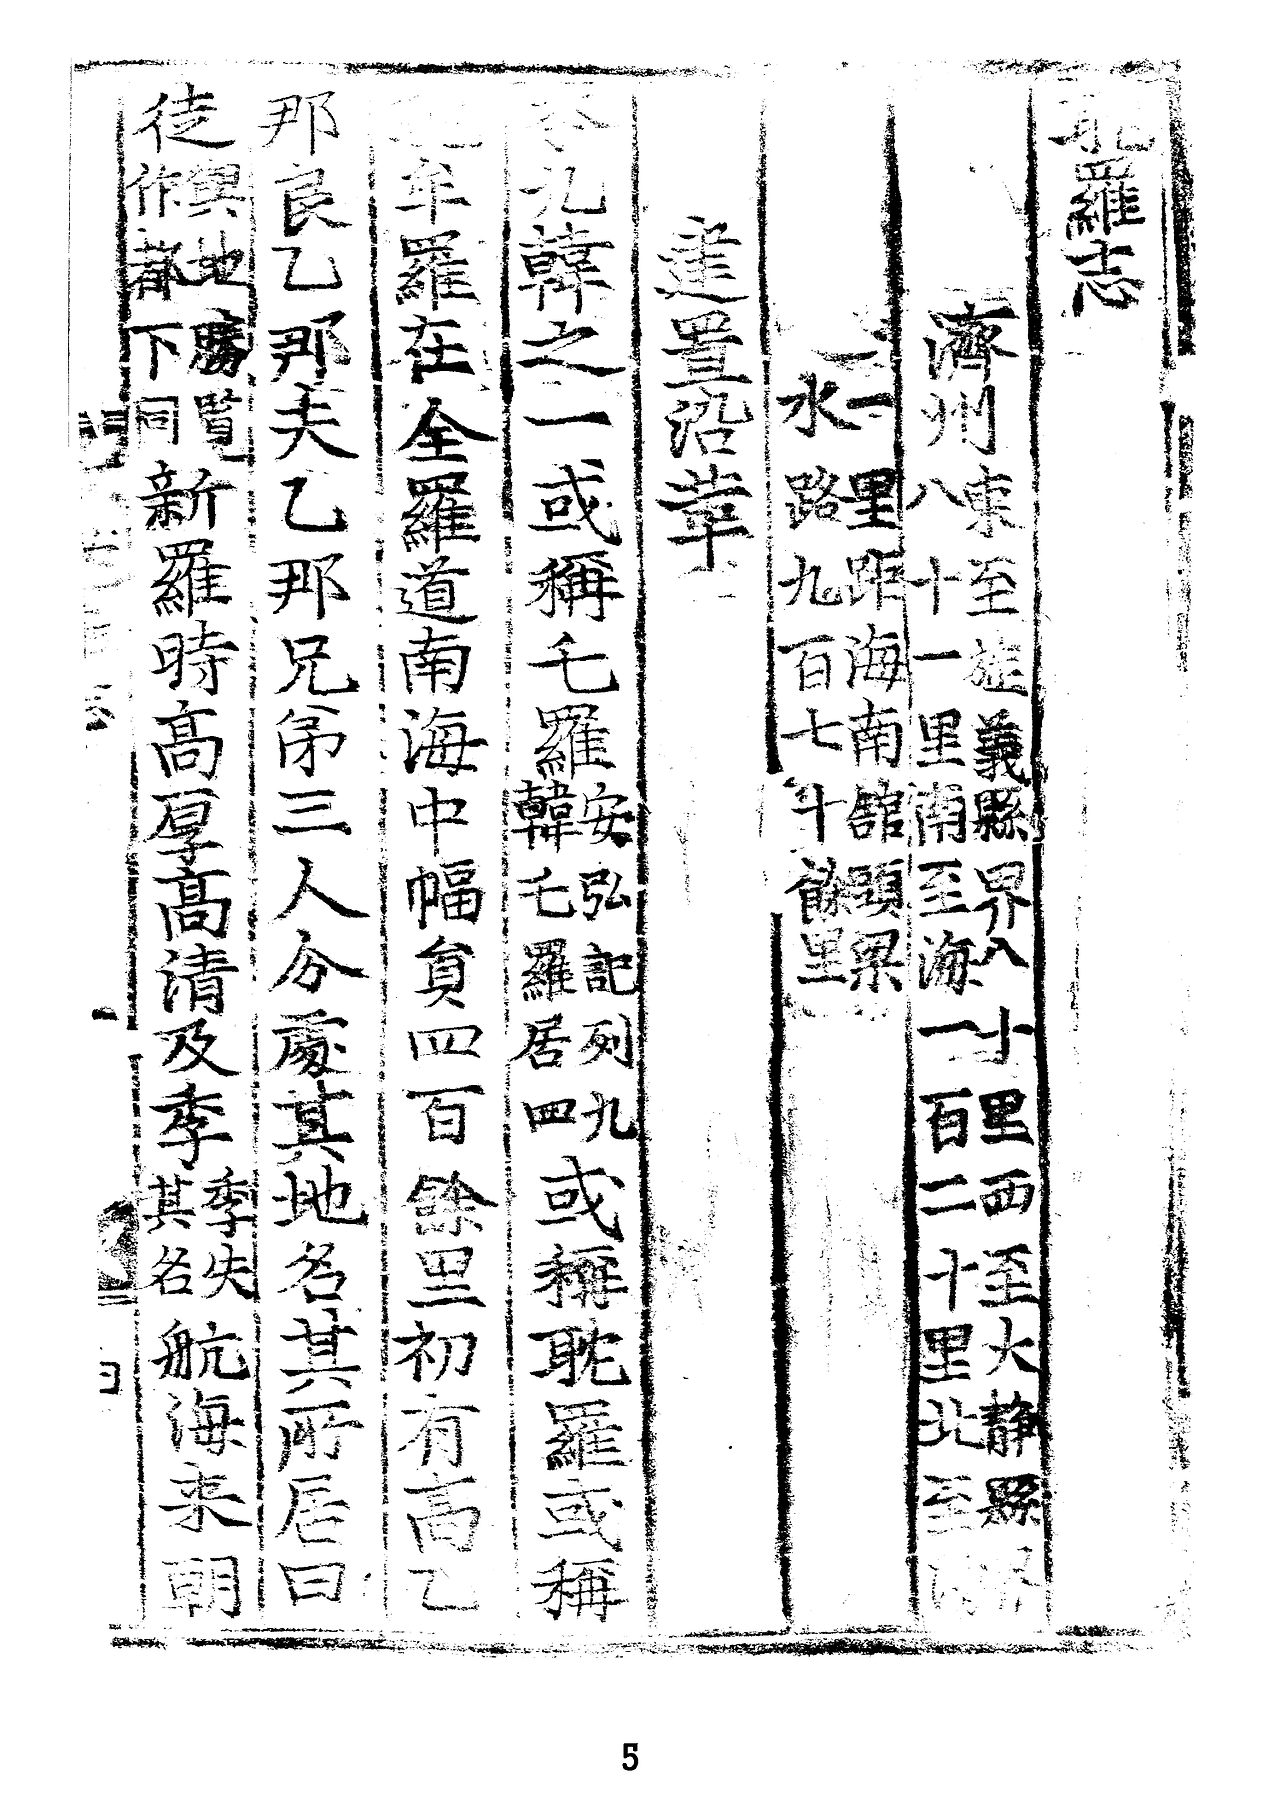 耽羅志
濟州東至旌義縣界八十里西至大静縣界
八十一里南至海一百二十里北至海
一里距海南舘頭梁
水路九百七十餘里
建置沿革
夲九韓之一或稱乇羅安弘記列九韓乇羅居四或稱耽羅或稱
牟羅在全羅道南海中幅貟四百餘里初有髙乙
那良乙那夫乙那兄弟三人分處其地名其所居曰
徒輿地勝覧作都下同新羅時髙厚髙清及季季失其名航海来朝
5